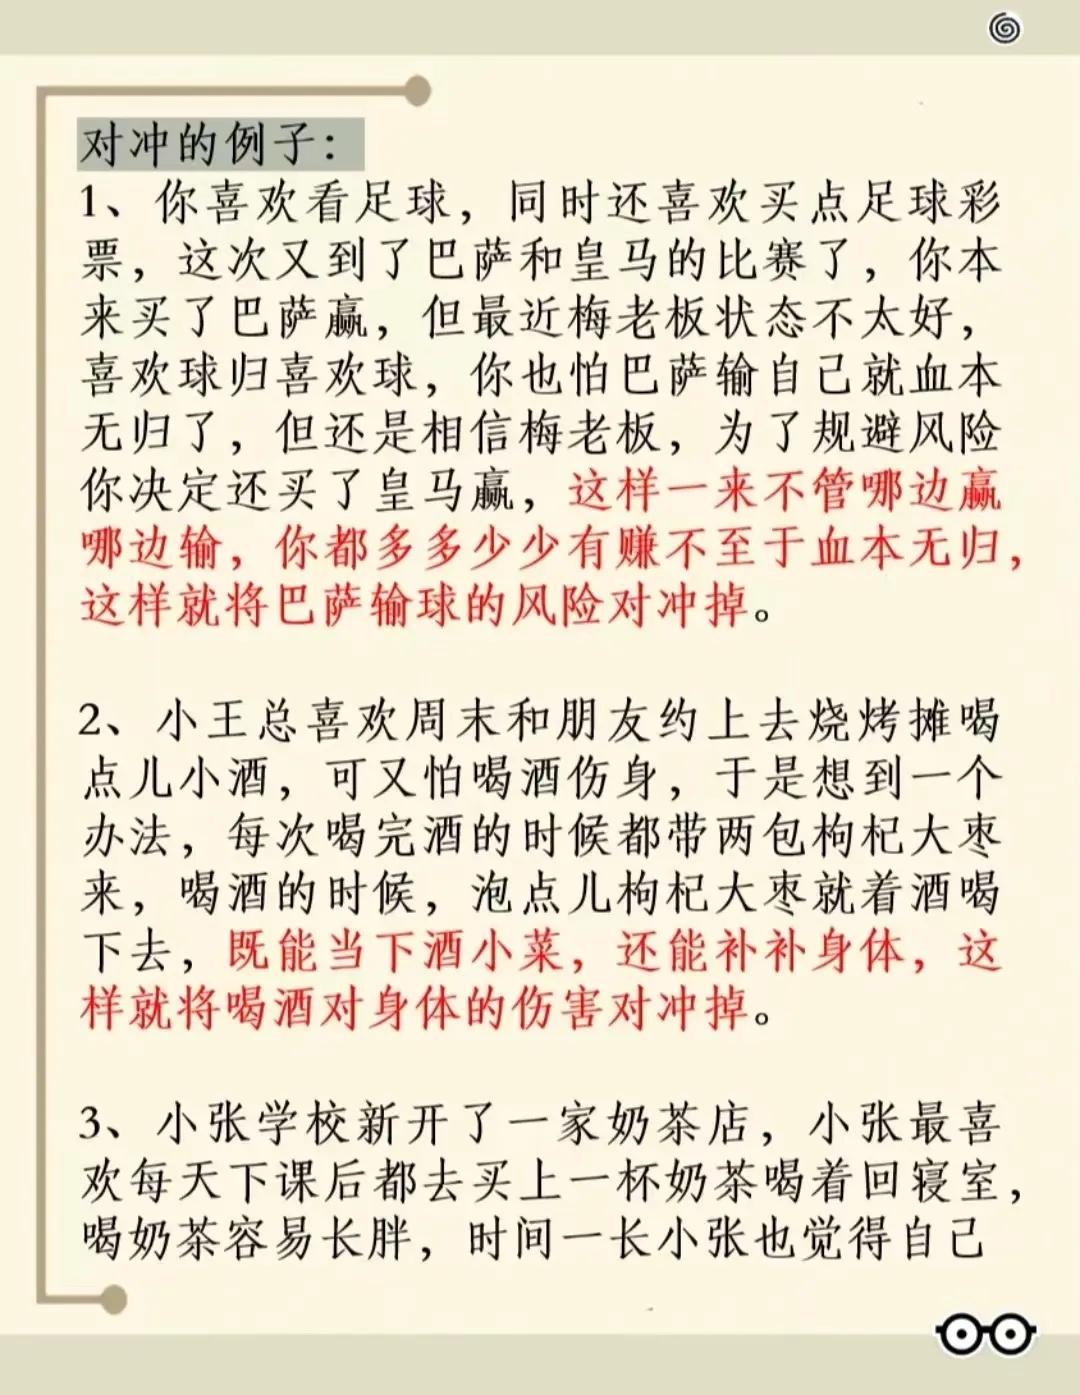 对冲的例子：
1、你喜欢看足球，同时还喜欢买点足球彩
票，这次又到了巴萨和皇马的比赛了，你本
来买了巴萨赢，但最近梅老板状态不太好，
喜欢球归喜欢球，你也怕巴萨输自己就血本
无归了，但还是相信梅老板，为了规避风险
你决定还买了皇马赢，这样一来不管哪边赢
哪边输，你都多多少少有赚不至于血本无归，
这样就将巴萨输球的风险对冲掉。
2、小王总喜欢周末和朋友约上去烧烤摊喝
点儿小酒，可又怕喝酒伤身，于是想到一个
办法，每次喝完酒的时候都带两包枸杞大枣
来，喝酒的时候，泡点儿枸杞大枣就着酒喝
下去，既能当下酒小菜，还能补补身体，这
样就将喝酒对身体的伤害对冲掉。
3、小张学校新开了一家奶茶店，小张最喜
欢每天下课后都去买上一杯奶茶喝着回寝室，
喝奶茶容易长胖，时间一长小张也觉得自己